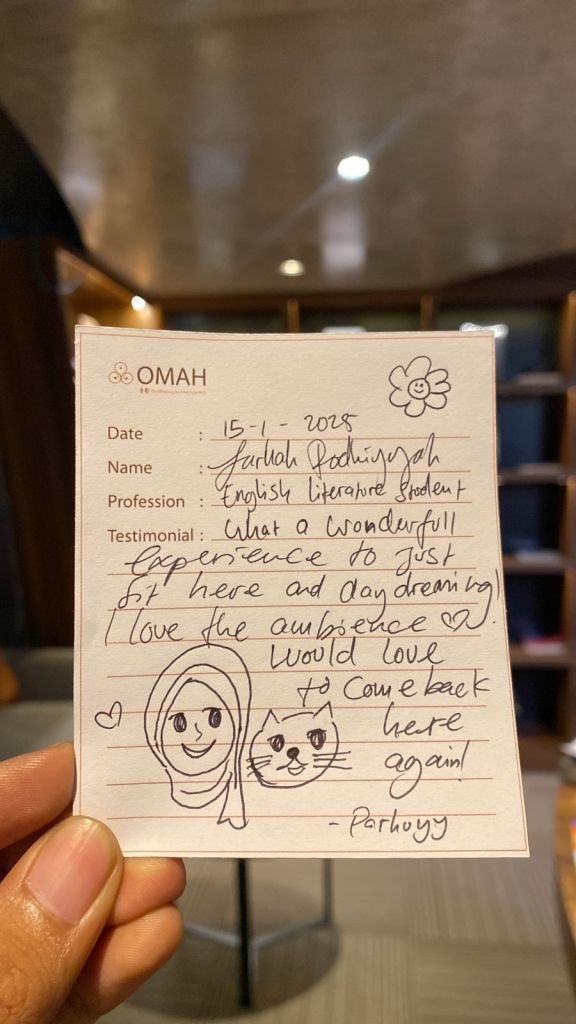 OMAH
Date : 15-1-2025
Name : Farhah Rodhiyyah
Profession : English Literature Student
Testimonial : What a wonderfull
experience to just
sit here and daydreaming!
I love the ambience
Would love
to come back
here
again!
- Parhuyy